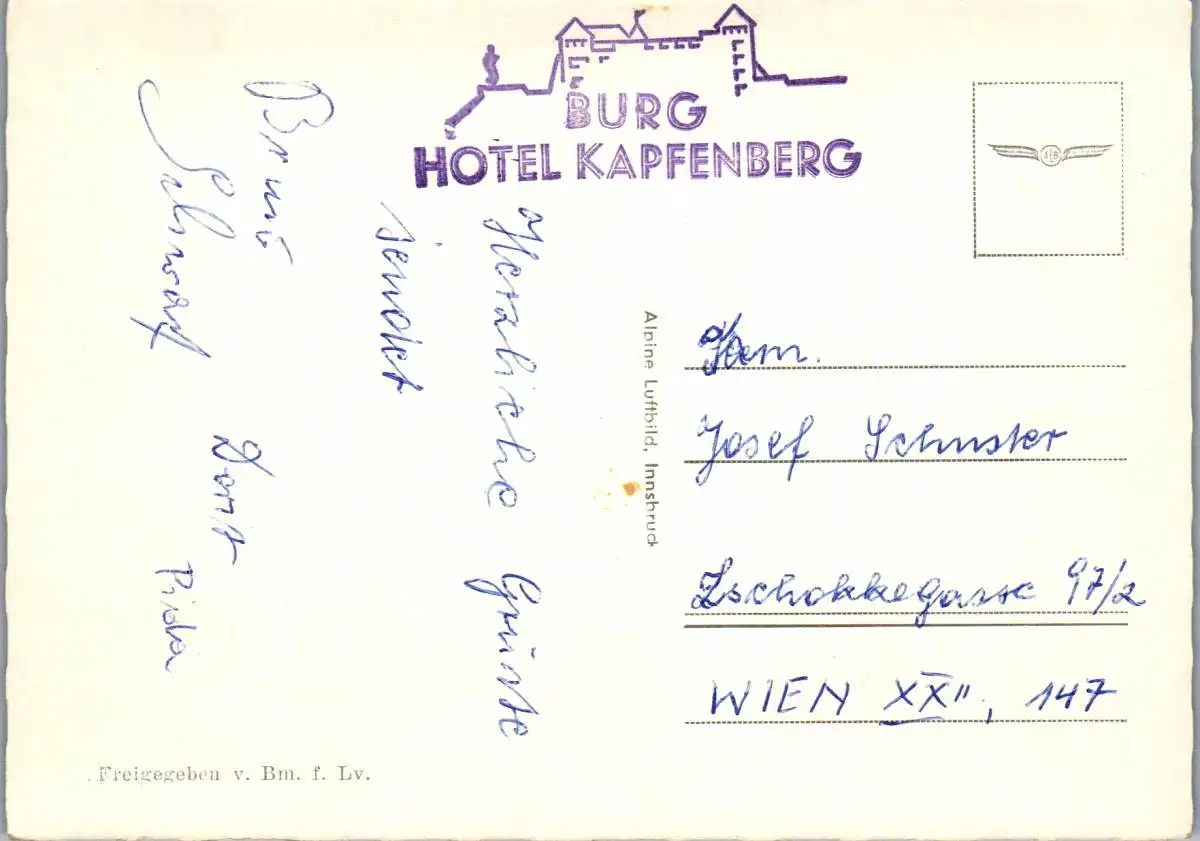 BURG
HOTEL KAPFENBERG
Herzliche Grüsse
sendet
Bruno
Dorit
Frida
Alpine Luftbild, Innsbruck
Fam.
Josef Schuster
Zschokkegasse 97/2
WIEN XXII, 147
Freigegeben v. Bm. f. Lv.